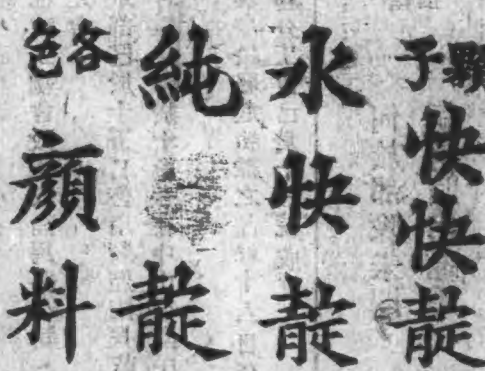 顆子快快靛
水快靛
純靛
各色顔料